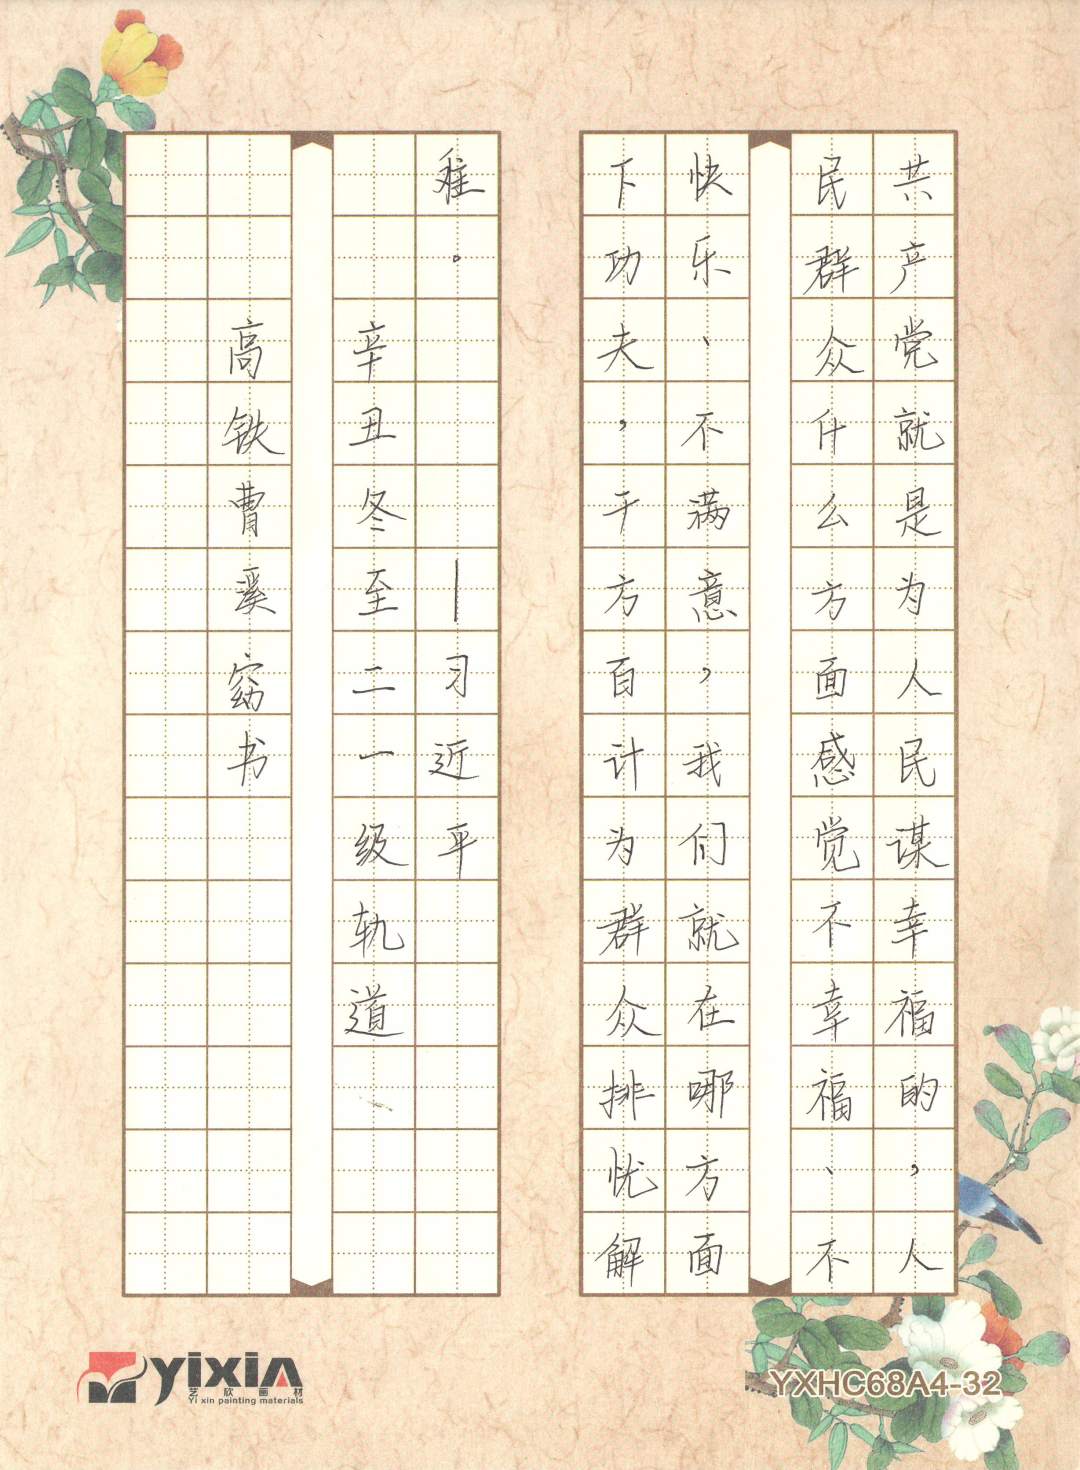 共产党就是为人民谋幸福的，人
民群众什么方面感觉不幸福、不
快乐、不满意，我们就在哪方面
下功夫，千方百计为群众排忧解
难。 —习近平
辛丑冬至二一级轨道
高铁曹溪窈书
yixin
艺欣画材
Yi xin painting materials
YXHC68A4-32